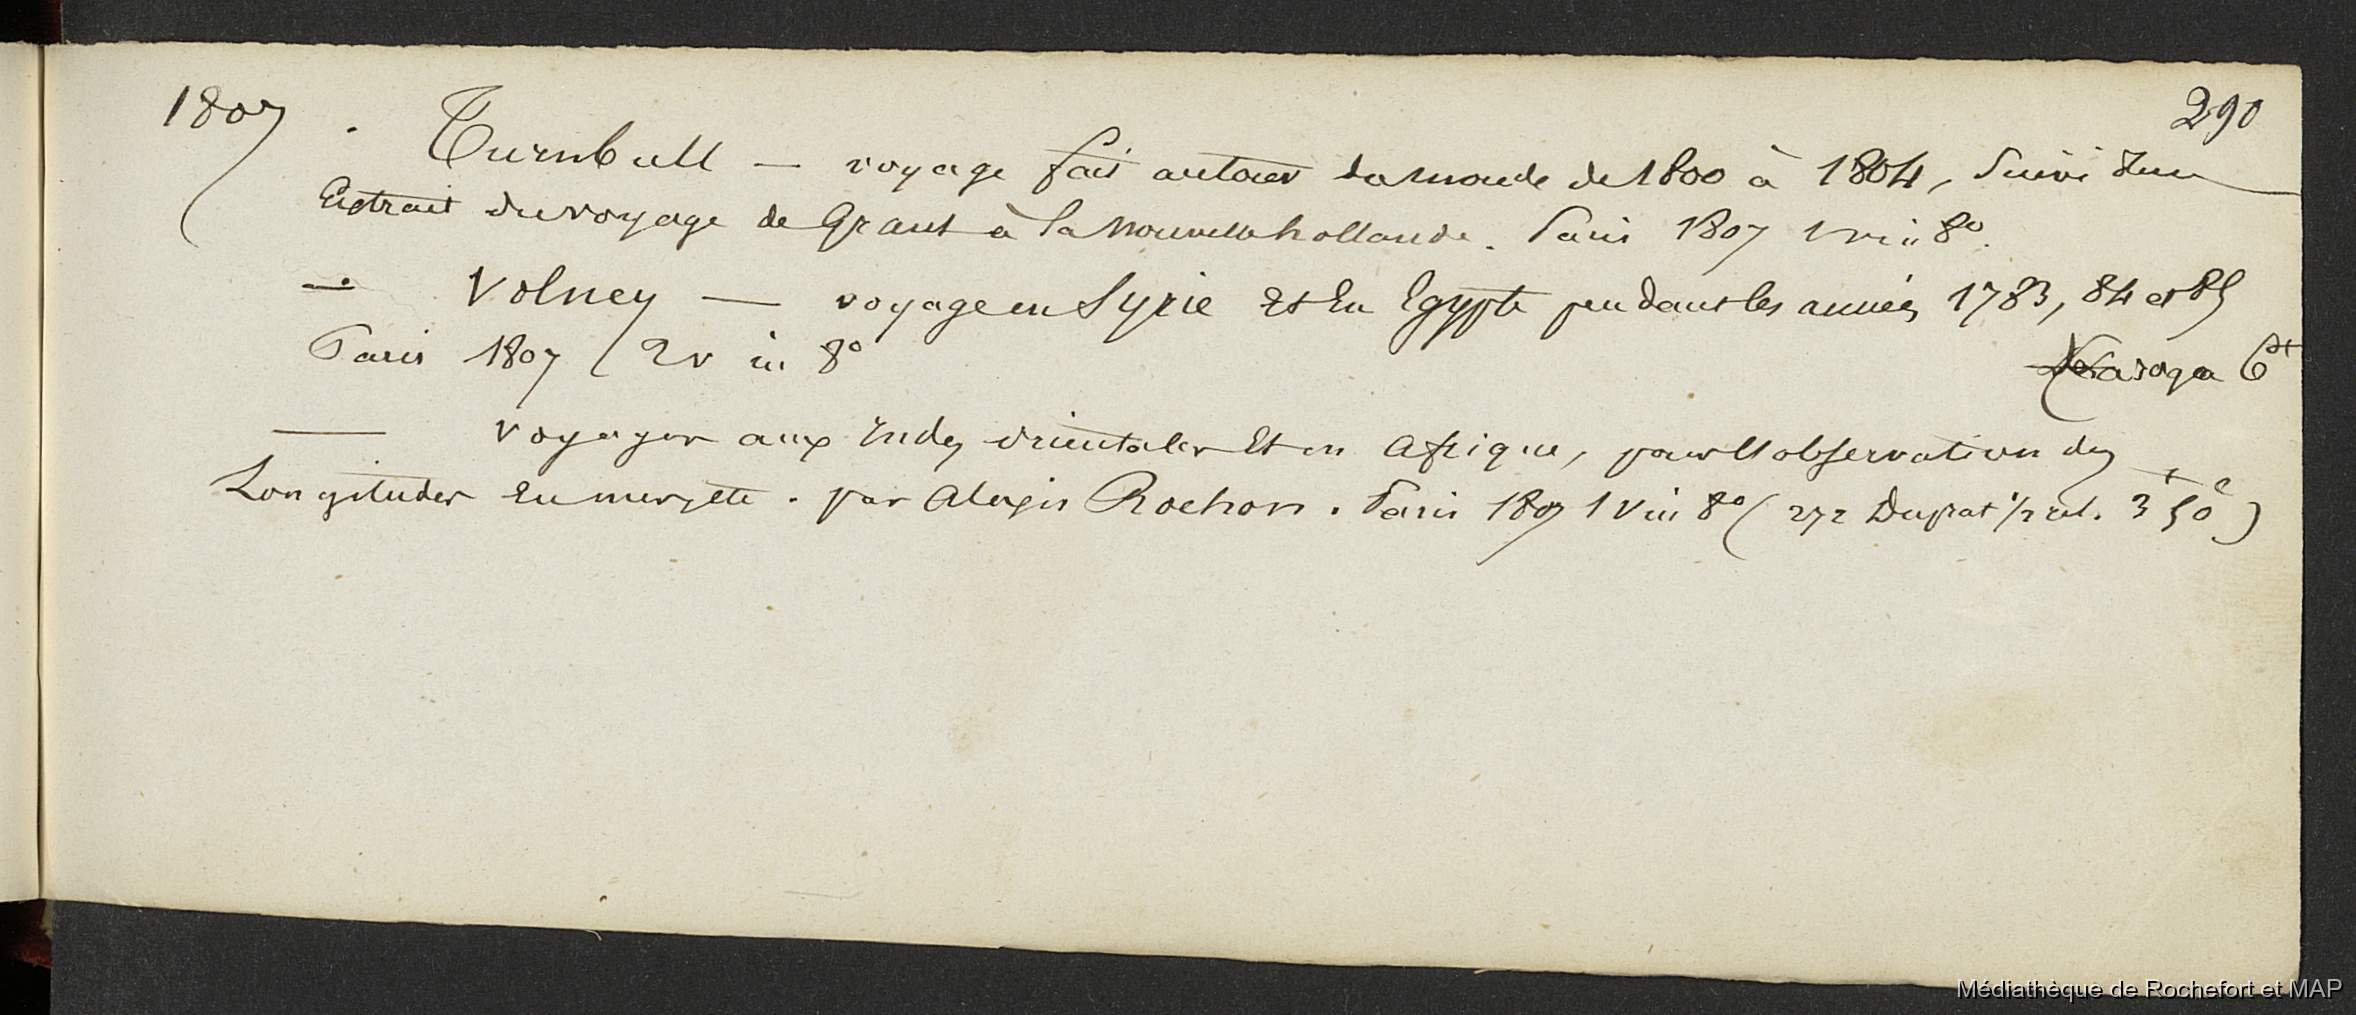 290
1807 . Turnbull — voyage fait autour du monde de 1800 à 1804, suivi d'un
Extrait du voyage de Grant à la nouvelle hollande. Paris 1807 1 v in 8º.
— Volney — voyage en Syrie et En Egypte pendant les années 1783, 84 et 85
Paris 1807 2 v in 8º
voyages aux Indes orientales Et en Afrique, pour l'observation des
Longitudes En mer, etc. par Alexis Rochon. Paris 1807 1 v in 8º ( 272 Duprat ½ rel. 3f 50c )
Médiathèque de Rochefort et MAP